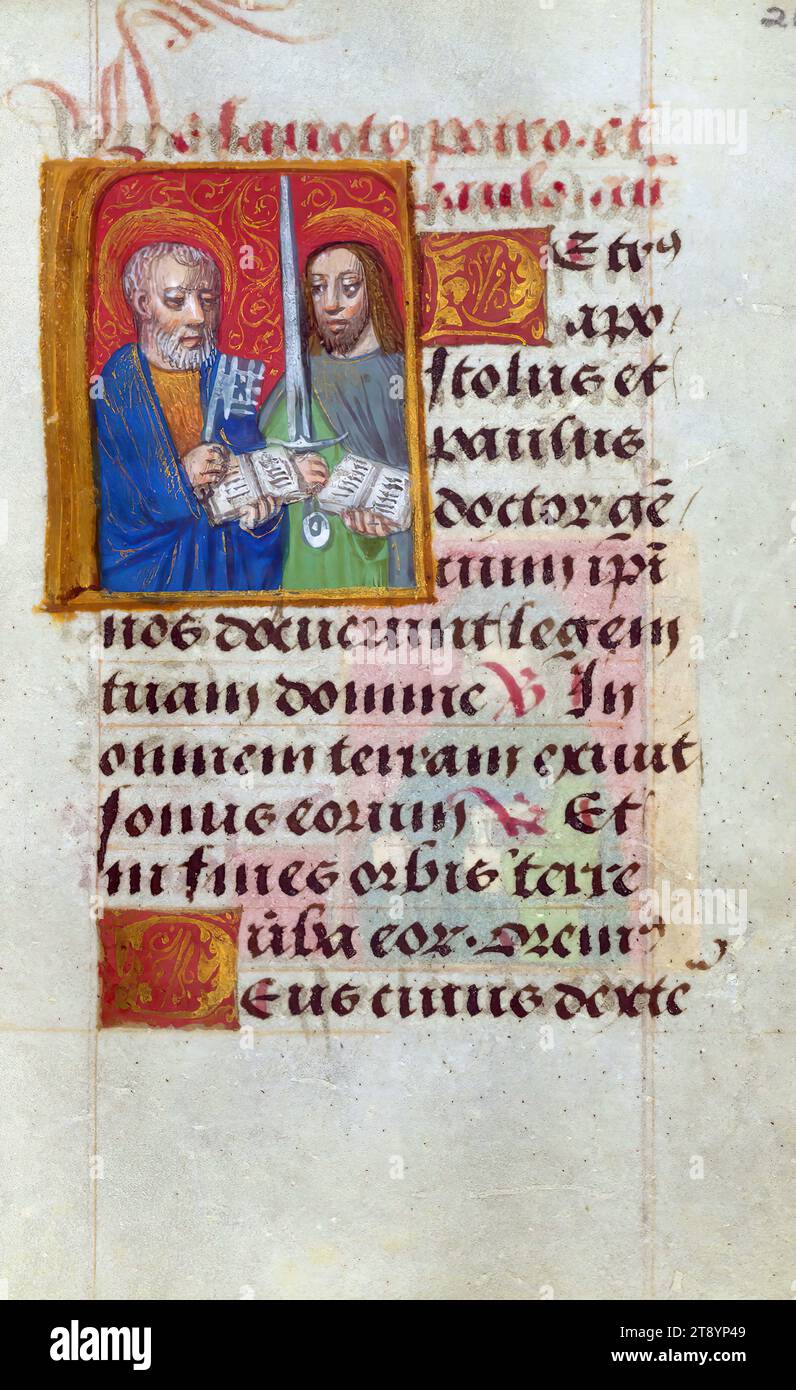 petro. et
paulo. an̄
PEtrꝰ
apo
stolus et
paulus
doctor gē
tium ip̄i
nos docuerunt legem
tuam domine ℣ In
omnem terram exiuit
sonus eorum ℟ Et
in fines orbis terre
ūba eoꝝ. Oremꝰ
DEus cuius dexte
alamy
Image ID: 2T8YP49
www.alamy.com